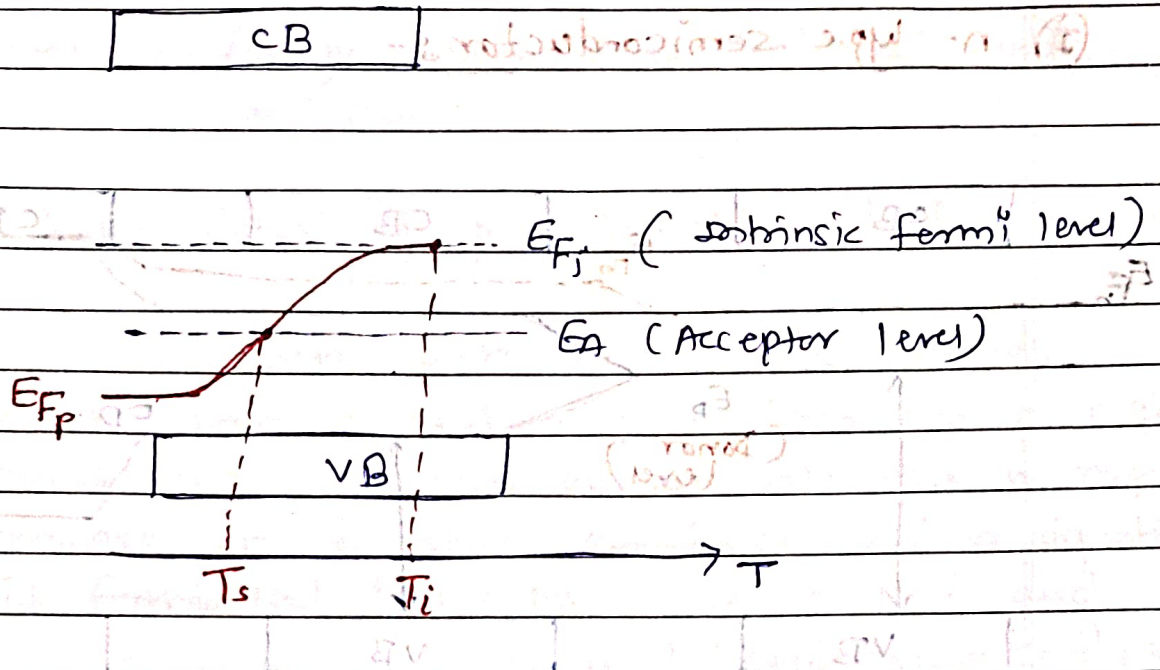 CB
E_Fi ( Intrinsic fermi level)
EA (Acceptor level)
E_Fp
VB
Ts Ti T